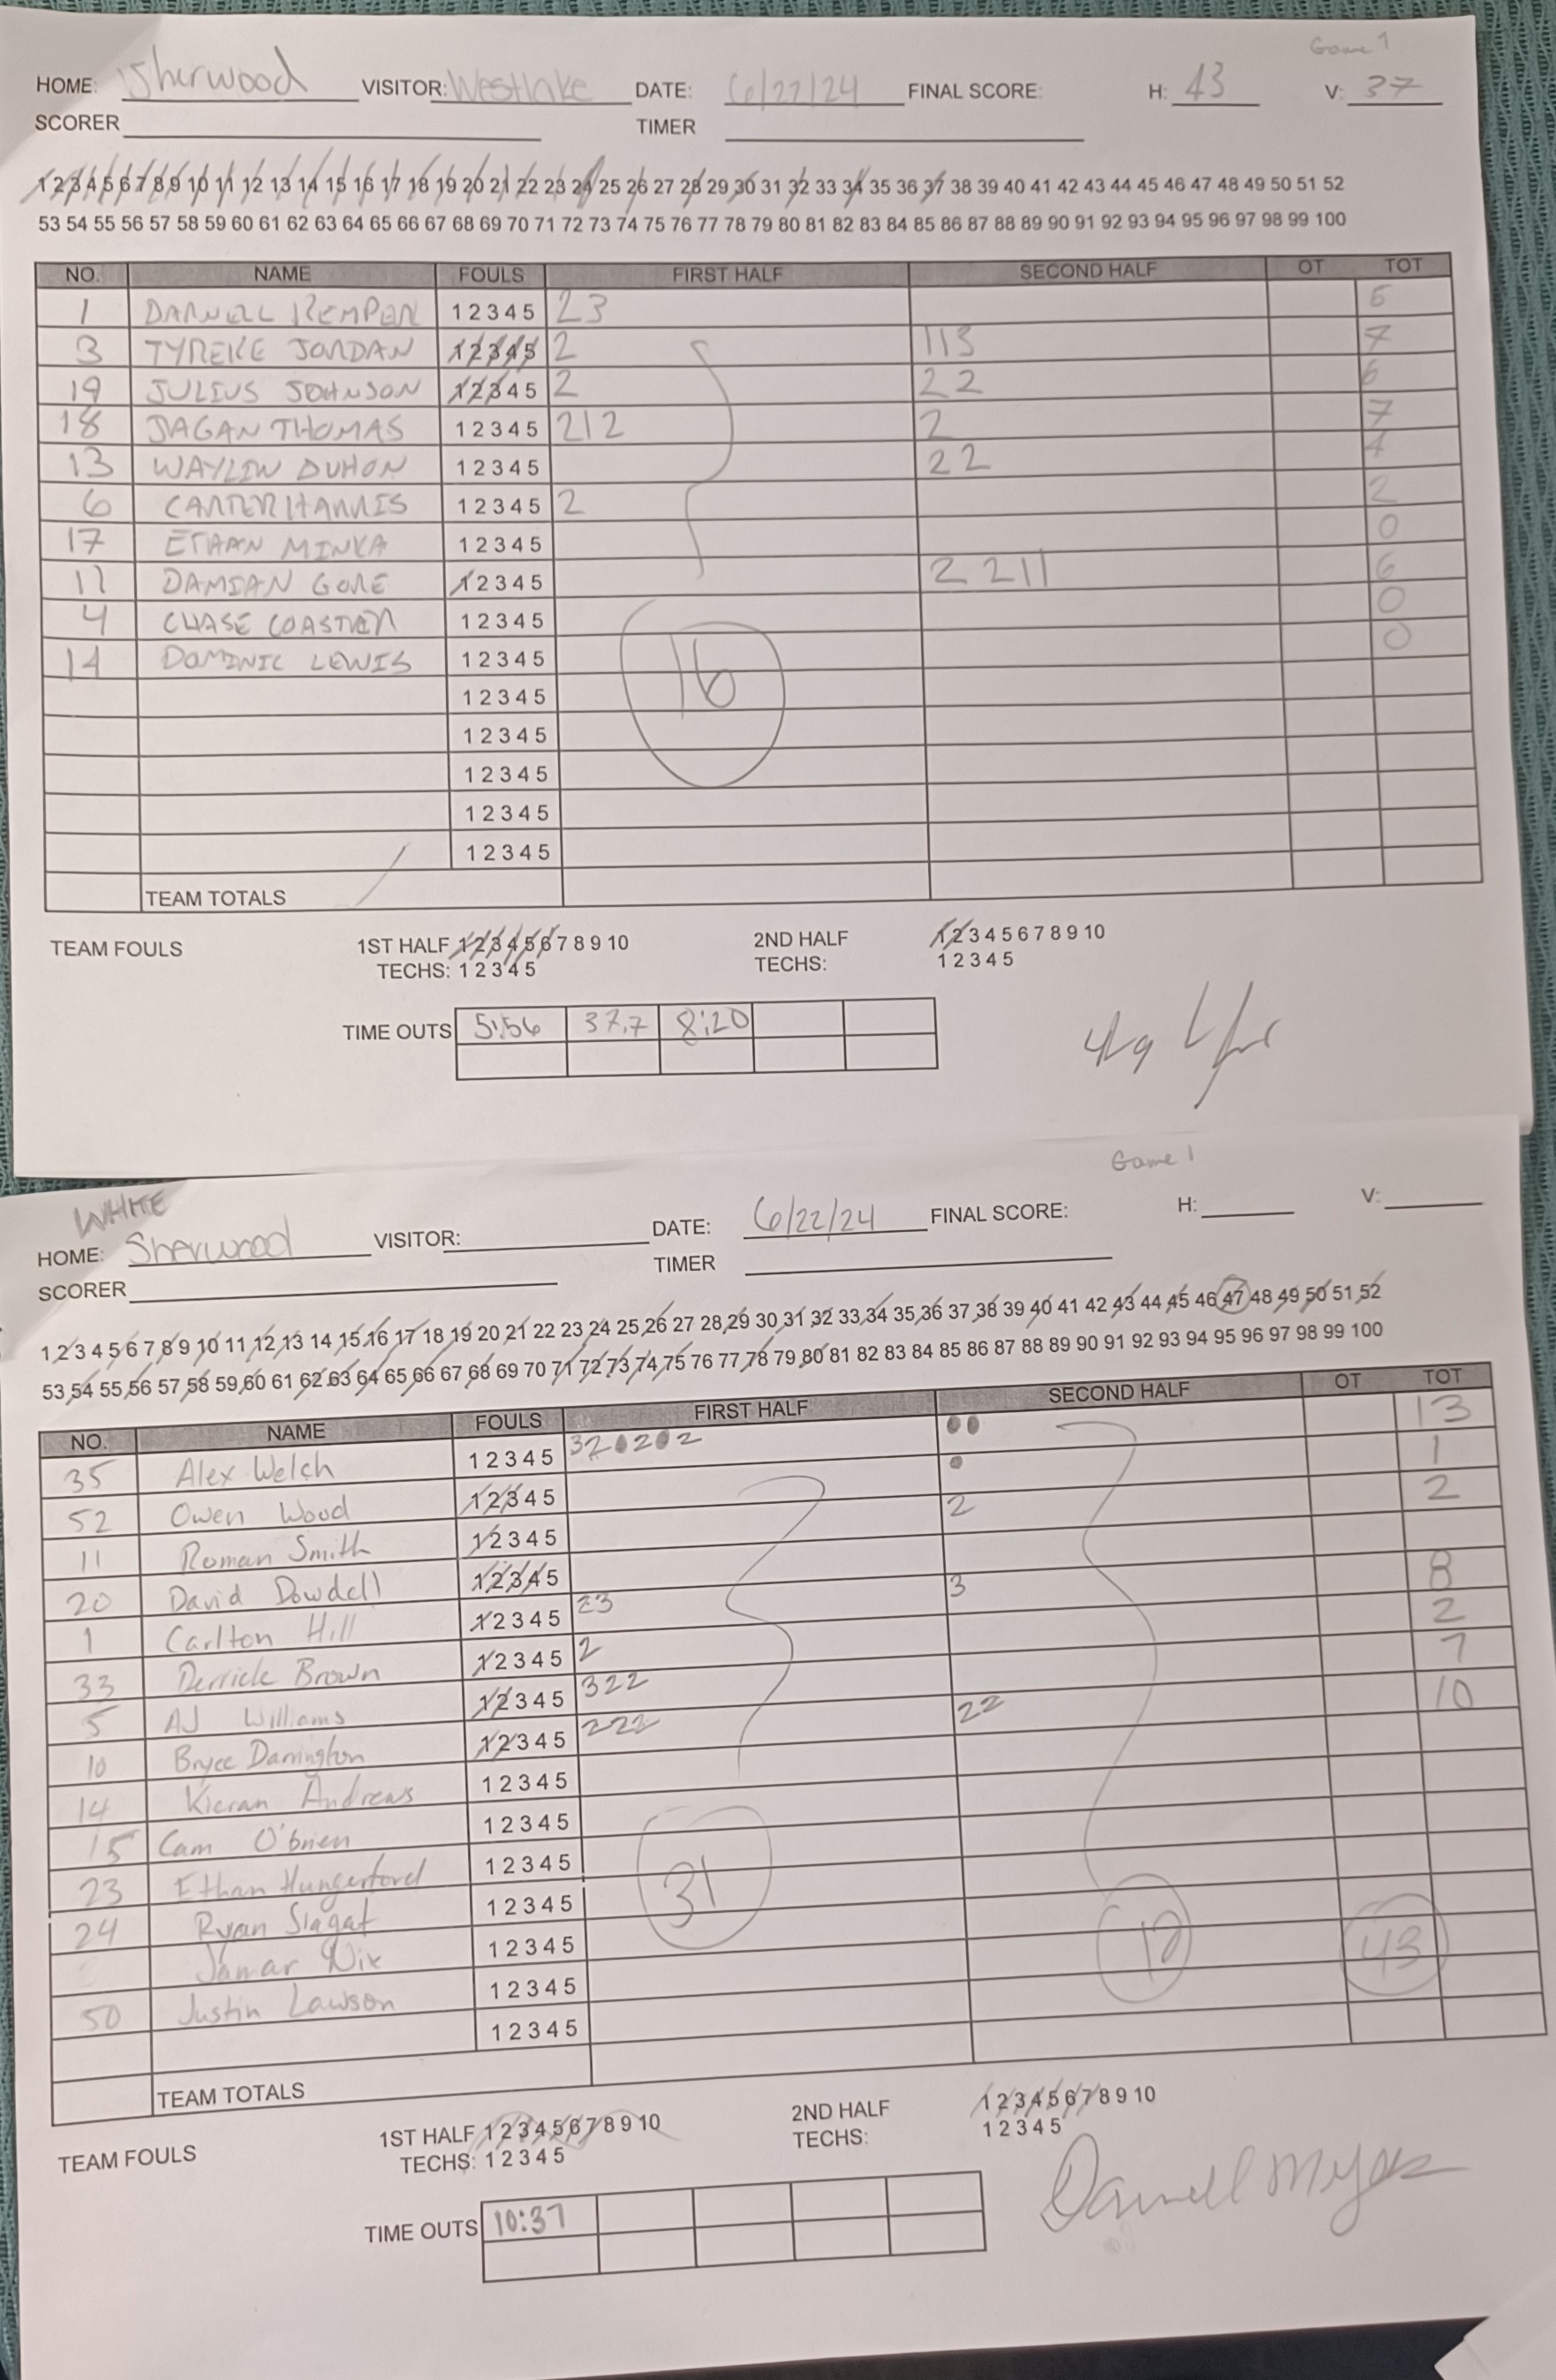 Game 1
HOME: Sherwood VISITOR: Westlake DATE: 6/22/24 FINAL SCORE: H: 43 V: 37
SCORER TIMER
1 2 3 4 5 6 7 8 9 10 11 12 13 14 15 16 17 18 19 20 21 22 23 24 25 26 27 28 29 30 31 32 33 34 35 36 37 38 39 40 41 42 43 44 45 46 47 48 49 50 51 52
53 54 55 56 57 58 59 60 61 62 63 64 65 66 67 68 69 70 71 72 73 74 75 76 77 78 79 80 81 82 83 84 85 86 87 88 89 90 91 92 93 94 95 96 97 98 99 100
NO. NAME FOULS FIRST HALF SECOND HALF OT TOT
1 DARNELL KEMPER 1 2 3 4 5 2 3 5
3 TYREKE JORDAN 1 2 3 4 5 2 1 1 3 7
19 JULIUS JOHNSON 1 2 3 4 5 2 2 2 6
18 JAGAN THOMAS 1 2 3 4 5 2 1 2 2 7
13 WAYLIN DUHON 1 2 3 4 5 2 2 4
6 CARTER HARRIS 1 2 3 4 5 2 2
17 ETHAN MINKA 1 2 3 4 5 0
12 DAMIAN GORE 1 2 3 4 5 2 2 1 1 6
4 CHASE 1 2 3 4 5 0
14 DOMINIC LEWIS 1 2 3 4 5 0
1 2 3 4 5 16
1 2 3 4 5
1 2 3 4 5
1 2 3 4 5
1 2 3 4 5
TEAM TOTALS
TEAM FOULS 1ST HALF 1 2 3 4 5 6 7 8 9 10 2ND HALF 1 2 3 4 5 6 7 8 9 10
TECHS: 1 2 3 4 5 TECHS: 1 2 3 4 5
TIME OUTS 5:56 37.7 8:20
Game 1
WHITE
HOME: Sherwood VISITOR: DATE: 6/22/24 FINAL SCORE: H: V:
SCORER TIMER
1 2 3 4 5 6 7 8 9 10 11 12 13 14 15 16 17 18 19 20 21 22 23 24 25 26 27 28 29 30 31 32 33 34 35 36 37 38 39 40 41 42 43 44 45 46 47 48 49 50 51 52
53 54 55 56 57 58 59 60 61 62 63 64 65 66 67 68 69 70 71 72 73 74 75 76 77 78 79 80 81 82 83 84 85 86 87 88 89 90 91 92 93 94 95 96 97 98 99 100
NO. NAME FOULS FIRST HALF SECOND HALF OT TOT
35 Alex Welch 1 2 3 4 5 3 2 2 2 13
52 Owen Wood 1 2 3 4 5 1
11 Roman Smith 1 2 3 4 5 2 2
20 David Dowdell 1 2 3 4 5
1 Carlton Hill 1 2 3 4 5 2 3 3 8
33 Derrick Brown 1 2 3 4 5 2 2
5 AJ Williams 1 2 3 4 5 3 2 2 7
10 Bryce Darrington 1 2 3 4 5 2 2 2 2 2 10
14 Kieran Andrews 1 2 3 4 5
15 Cam O'brien 1 2 3 4 5
23 Ethan Hungerford 1 2 3 4 5 31
24 Ryan Slagat 1 2 3 4 5
Jamar Nix 1 2 3 4 5 12 43
50 Justin Lawson 1 2 3 4 5
1 2 3 4 5
TEAM TOTALS
TEAM FOULS 1ST HALF 1 2 3 4 5 6 7 8 9 10 2ND HALF 1 2 3 4 5 6 7 8 9 10
TECHS: 1 2 3 4 5 TECHS: 1 2 3 4 5
TIME OUTS 10:37
Darnell Myers